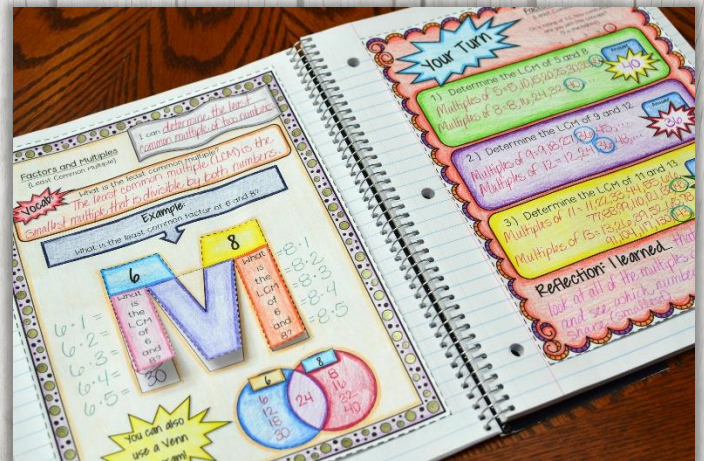 I can determine the least
common multiple of two numbers.
Factors and Multiples
(Least Common Multiple)
Vocab!
What is the least common multiple?
The least common multiple (LCM) is the
smallest multiple that is divisible by both numbers.
Example:
What is the least common factor of 6 and 8?
6
8
What
is
the
LCM
of
6
and
8?
30
What
is
the
LCM
of
6
and
8?
6·1=
6·2=
6·3=
6·4=
6·5=
=8·1
=8·2
=8·3
=8·4
=8·5
6
8
6
12
18
30
24
8
16
32
40
You can also
use a Venn
Your Turn
1.) Determine the LCM of 5 and 8
Multiples of 5=5,10,15,20,25,30,35,40
Multiples of 8=8,16,24,32,40
Answer
40
2.) Determine the LCM of 9 and 12
Multiples of 9=9,18,27,36,45,...
Multiples of 12=12,24,36,48,...
Answer
36
3.) Determine the LCM of 11 and 13
Multiples of 11=11,22,33,44,55,
Multiples of 13=13,26,39,52,
Reflection: I learned... that
look at all of the multiples
and see which number
share (smallest)